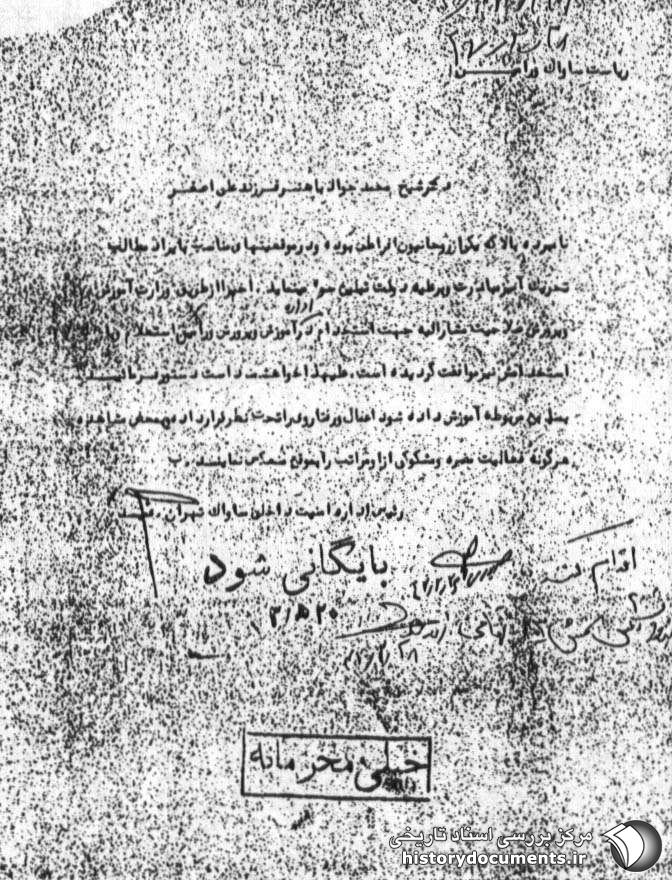 ریاست ساواک ورامین
دکتر شیخ محمد جواد باهنر فرزند علی اصغر
نامبرده بالا که یکی از روحانیون افراطی بوده و در موقعیتهای مناسب با ایراد مطالب
تحریک آمیز مبادرت و بر علیه دولت تبلیغ سوء مینماید. اخیرا از طریق وزارت آموزش
اداره
و پرورش صلاحیت مشارالیه جهت استخدام در آموزش و پرورش ورامین استعلام و با
استخدامش نیز موافقت گردیده است. علیهذا خواهشمند است دستور فرمایند
بمنابع مربوطه آموزش داده شود اعمال و رفتار وی را تحت نظر قرار داده بمحض مشاهده
هرگونه فعالیت مضره و مشکوکی از او مراتب را بموقع منعکس نمایند. ب
رئیس اداره امنیت داخلی ساواک تهران.
اقدام کنید
بایگانی شود
۲/۵/۲۰
خیلی محرمانه
مرکز بررسی اسناد تاریخی
historydocuments.ir